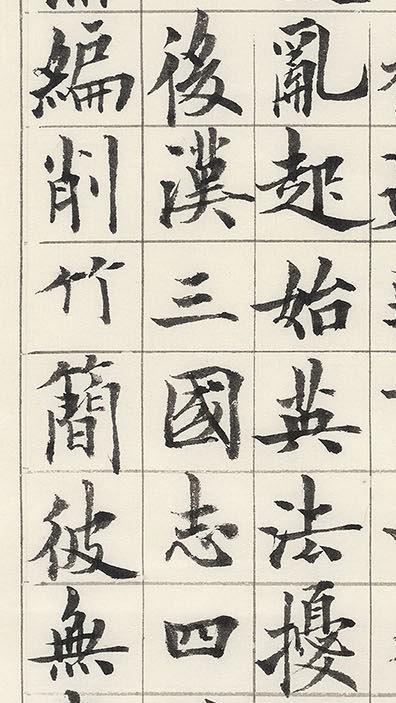 亂起始英法擾
後漢三國志四
編削竹簡彼無